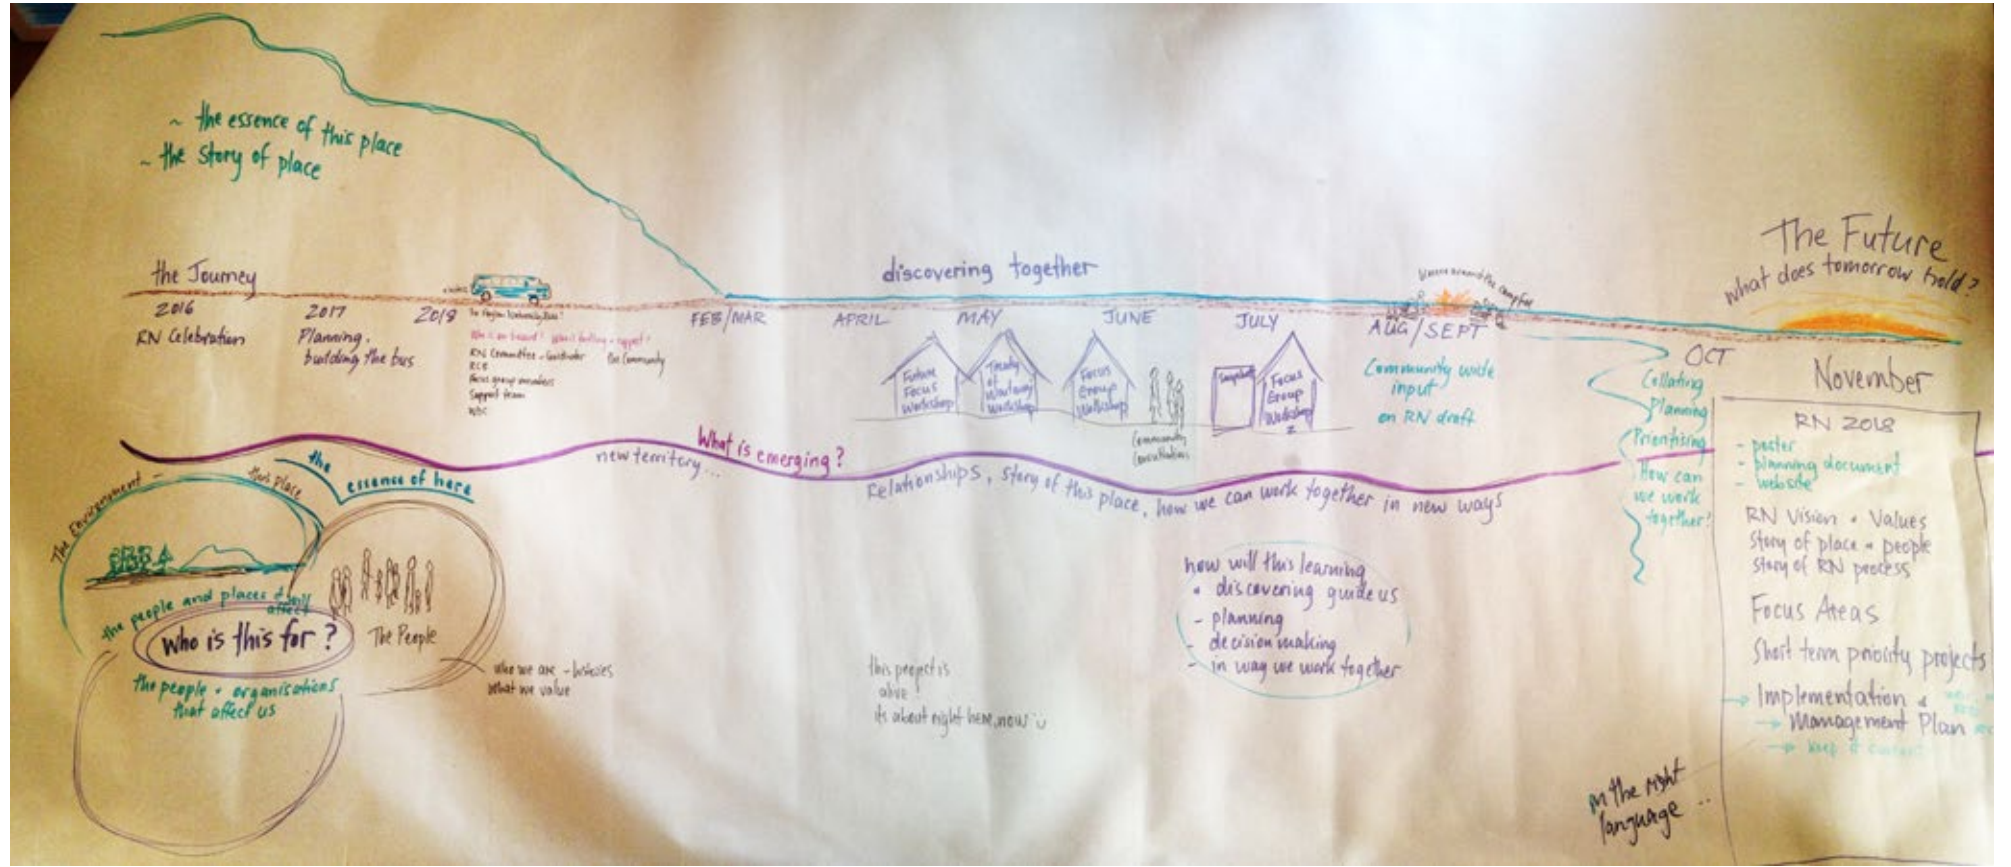 ~ the essence of this place
~ the story of place
the Journey
2016
RN Celebration
2017
Planning.
building the bus
2018
RN Committee - Coordinator
The Community
RCE
Focus group members
Support team
WDC
discovering together
FEB/MAR
APRIL
MAY
JUNE
JULY
AUG/SEPT
OCT
Future
Focus
Workshop
Treaty
of
Waitangi
Workshop
Focus
Group
Workshop
Community
Consultation
Focus
Group
Workshop
2
Community wide
input
on RN draft
The Future
what does tomorrow hold?
Collating
Planning
Prioritising
How can
we work
together?
November
RN 2018
- poster
- planning document
- website
RN Vision + Values
Story of place + people
Story of RN process
Focus Areas
Short term priority projects
→ Implementation +
→ Management Plan
What is emerging?
new territory...
Relationships, story of this place, how we can work together in new ways
the
essence of here
The Environment -
this place
the people and places
affect
who is this for?
The People
the people + organisations
that affect us
who we are - histories
what we value
this project is
alive
its about right here, now
how will this learning
+ discovering guide us
- planning
- decision making
- in way we work together
in the right
language ...